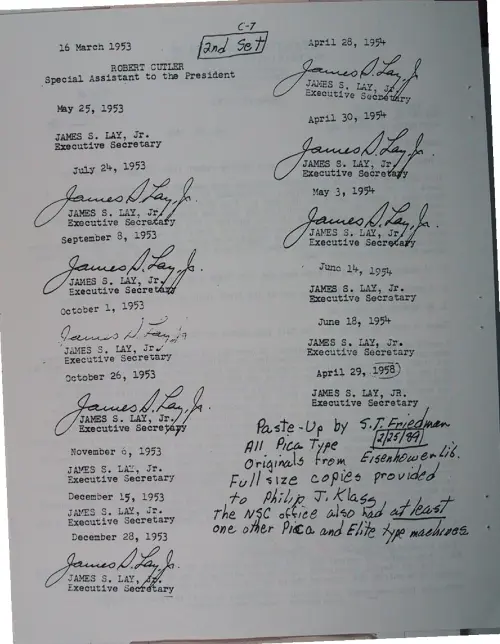 C-7
2nd Set
16 March 1953
ROBERT CUTLER
Special Assistant to the President
May 25, 1953
JAMES S. LAY, Jr.
Executive Secretary
July 24, 1953
James S. Lay, Jr.
JAMES S. LAY, Jr.
Executive Secretary
September 8, 1953
James S. Lay, Jr.
JAMES S. LAY, Jr.
Executive Secretary
October 1, 1953
James S. Lay, Jr.
JAMES S. LAY, Jr.
Executive Secretary
October 26, 1953
James S. Lay, Jr.
JAMES S. LAY, Jr.
Executive Secretary
November 6, 1953
JAMES S. LAY, Jr.
Executive Secretary
December 15, 1953
JAMES S. LAY, Jr.
Executive Secretary
December 28, 1953
James S. Lay, Jr.
JAMES S. LAY, Jr.
Executive Secretary
April 28, 1954
James S. Lay, Jr
JAMES S. LAY, Jr.
Executive Secretary
April 30, 1954
James S. Lay, Jr.
JAMES S. LAY, Jr.
Executive Secretary
May 3, 1954
James S. Lay, Jr.
JAMES S. LAY, Jr.
Executive Secretary
June 14, 1954
JAMES S. LAY, Jr.
Executive Secretary
June 18, 1954
JAMES S. LAY, Jr.
Executive Secretary
April 29, 1958
JAMES S. LAY, JR.
Executive Secretary
Paste-Up by S.T. Friedman
All Pica Type 2/25/89
Originals from Eisenhower Lib.
Full size copies provided
to Philip J. Klass
The NSC office also had at least
one other Pica and Elite type machines.